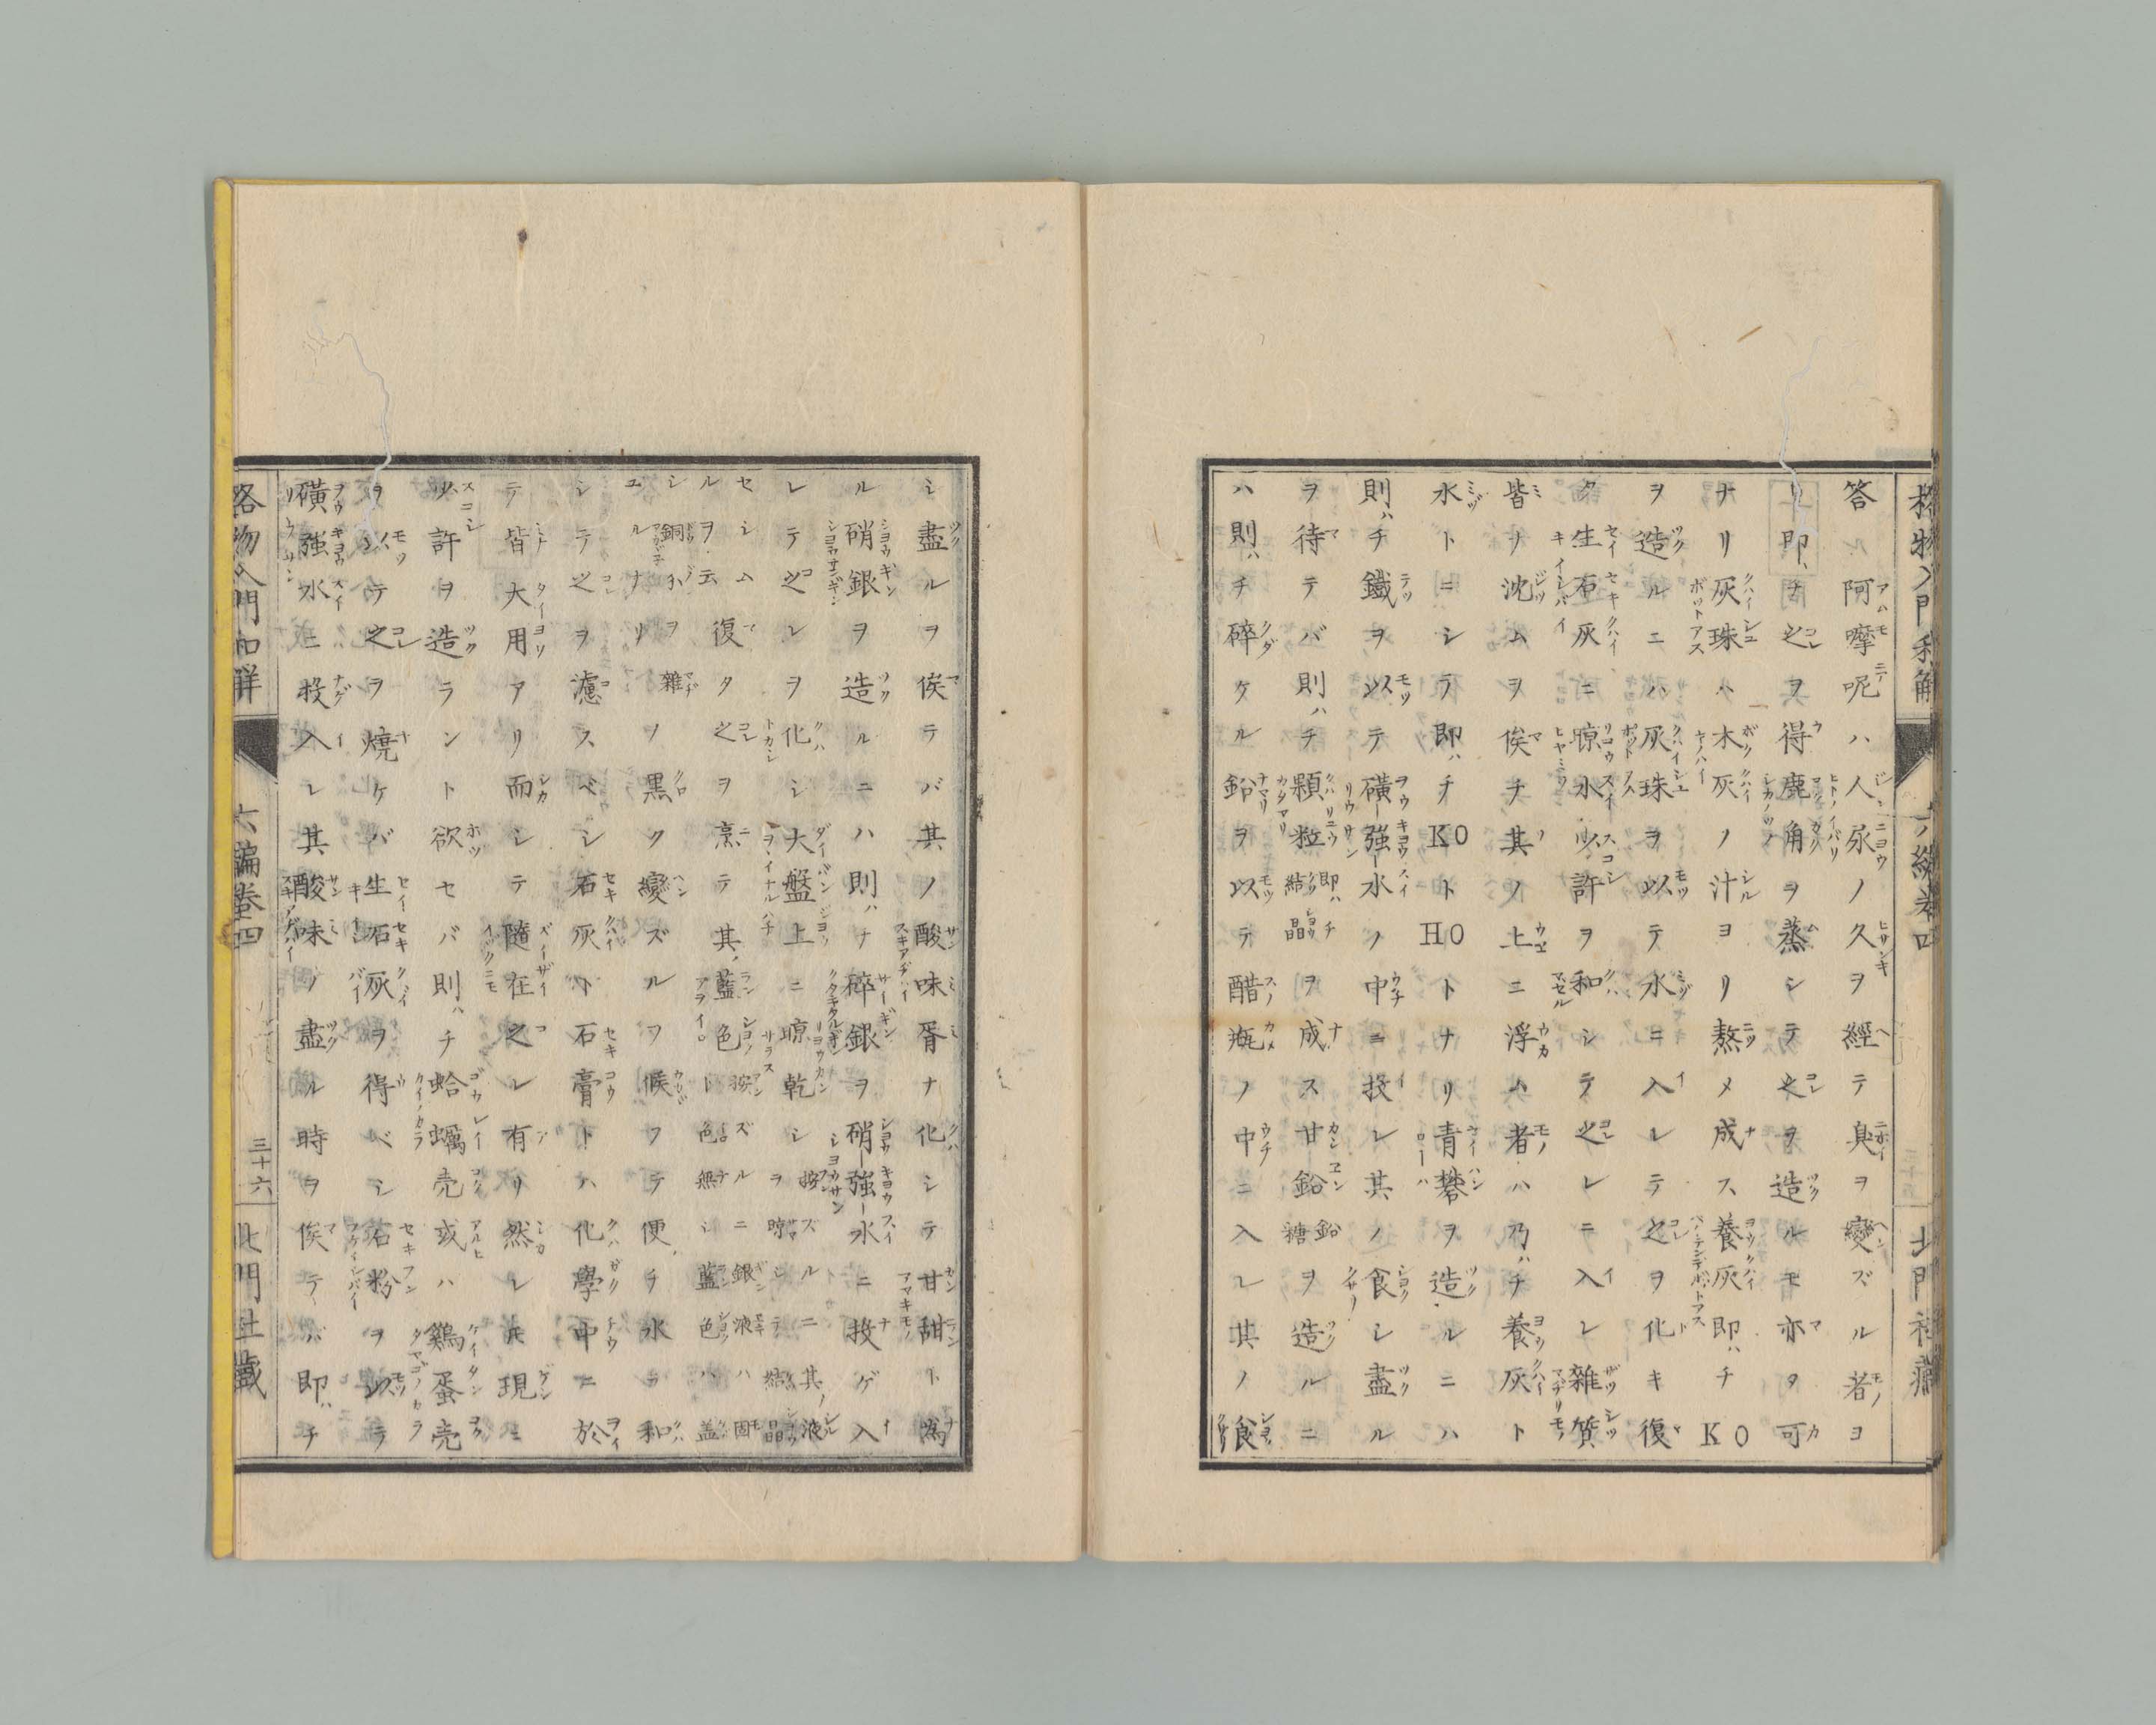 格物入門和解 六編卷四 北門社藏
答ル阿摩呢ハ人尿ノ久ヲ經テ臭ヲ變ズル者ヨ
リ即チ之ヲ得鹿角ヲ蒸シテ之ヲ造ルモ亦タ可
ナリ灰珠ハ木灰ノ汁ヨリ熬メ成ス養灰即チKO
ヲ造ルニハ灰珠ヲ以テ水ニ入レテ之ヲ化キ復
タ生石灰ニ晾水少許ヲ和シテ之レニ入レ雜質
皆ナ沈ムヲ俟チ其ノ上ニ浮ム者ハ乃チ養灰ト
水トニシテ即チKOトHOトナリ青礬ヲ造ルニハ
則チ鐵ヲ以テ磺強水ノ中ニ投レ其ノ食シ盡ル
ヲ待テバ則チ顆粒即チ結晶ヲ成ス甘鉛鉛糖ヲ造ルニ
ハ則チ碎ケル鉛ヲ以テ醋瓶ノ中ニ入レ其ノ食
シ盡ルヲ俟テバ其ノ酸味胥ナ化シテ甘甜ト為
ル硝銀ヲ造ルニハ則ナ碎銀ヲ硝強水ニ投ゲ入
レテ之レヲ化シ大盤上ニ晾乾シ
セシムルヲ云復タ之ヲ烹テ其藍色
シ銅水ヲ雜ノ黒ク變ズルヲ候フテ便チ水ヲ和
シテ之ヲ濾スベシ石灰ト石膏トハ化學中ニ於
テ皆大用アリ而シテ隨在之レ有リ然レ𪜈現ニ
少許ヲ造ラント欲セバ則チ蛤蠣売或ハ鷄蛋売
ヲ以テ之ヲ燒ケバ生石灰ヲ得ベシ石粉ヲ以テ
磺強水ニ投入レ其酸味ノ盡ル時ヲ俟テバ即チ
格物入門和解 六編卷四 三十六 北門社藏